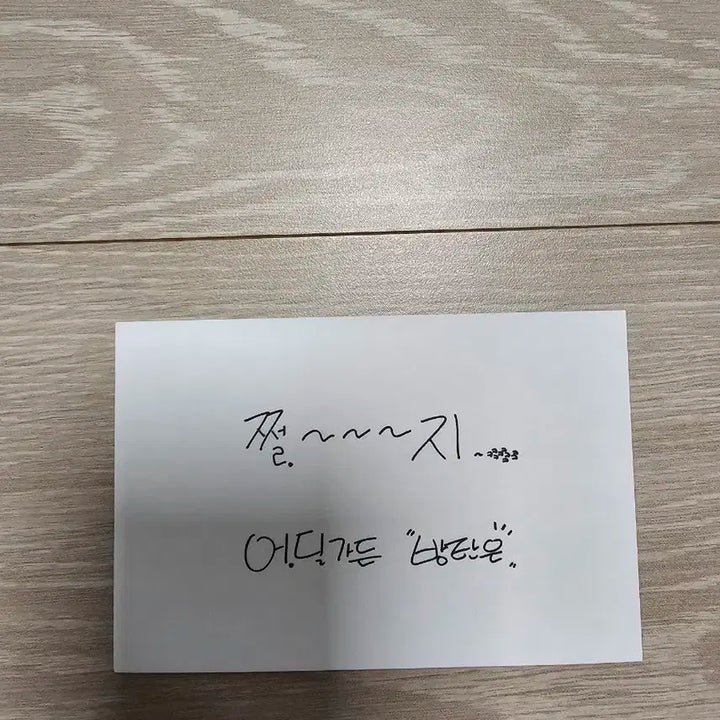 쩔~~~지~ㅋㅋㅋㅋㅋ
어딜가든 "방탄은"